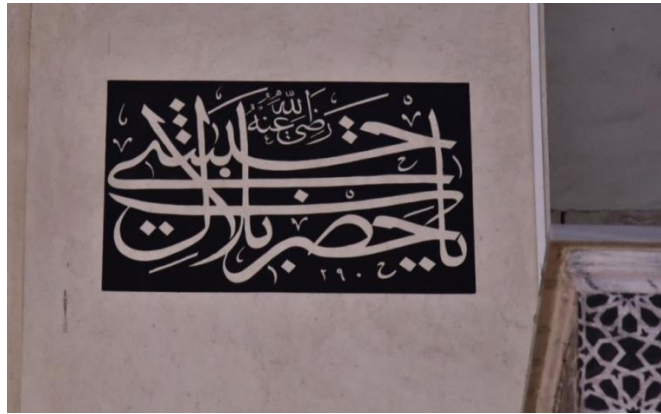 يا حضرت بلال
حبشي
رضي الله عنه
۲۹۰